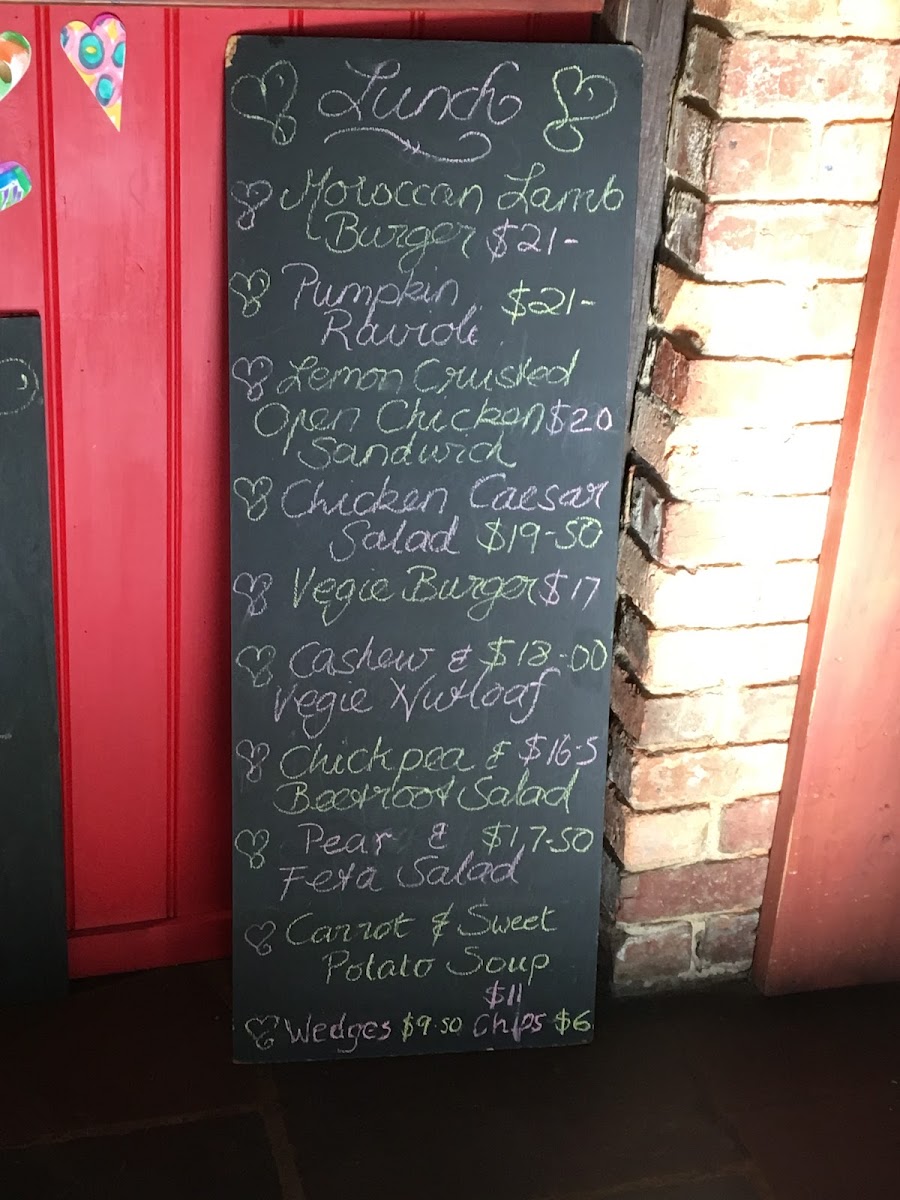 Lunch
Moroccan Lamb
Burger $21-
Pumpkin $21-
Ravioli
Lemon Crusted
Open Chicken $20
Sandwich
Chicken Caesar
Salad $19-50
Vegie Burger $17
Cashew & $18-00
Vegie Nutloaf
Chickpea & $16-5
Beetroot Salad
Pear & $17-50
Feta Salad
Carrot & Sweet
Potato Soup
$11
Wedges $9.50 Chips $6